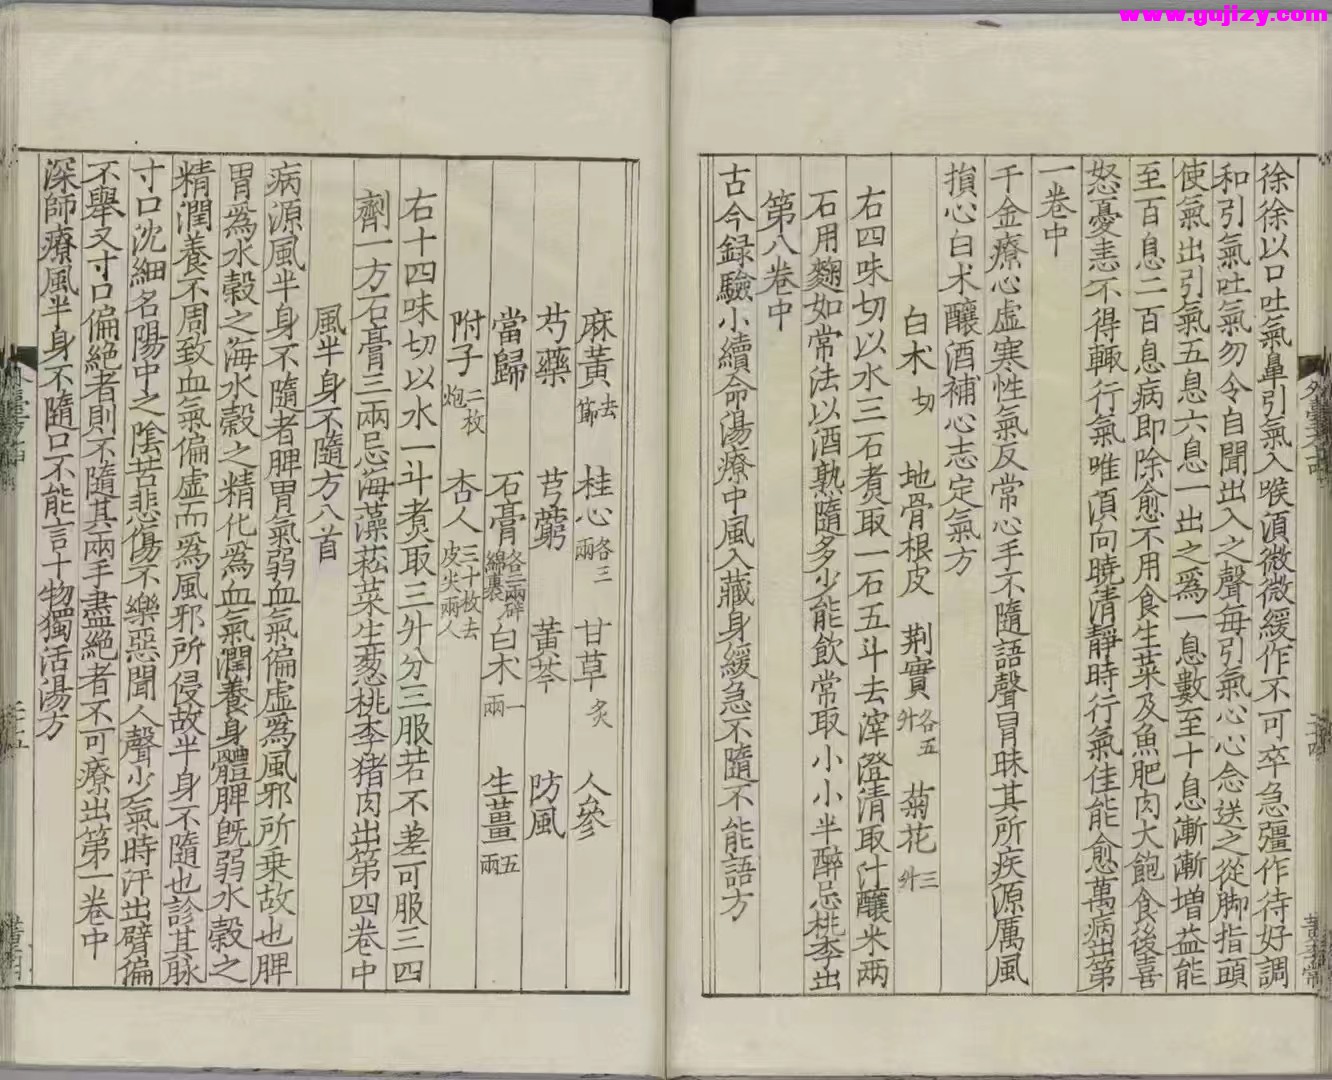 www.gujizy.com
徐徐以口吐氣鼻引氣入喉湏微微緩作不可卒急彊作待好調
和引氣吐氣勿令自聞出入之聲每引氣心心念送之從脚指頭
使氣出引氣五息六息一出之爲一息數至十息漸漸增益能
至百息二百息病即除愈不用食生菜及魚肥肉大飽食後喜
怒憂恚不得輙行氣唯湏向曉清靜時行氣佳能愈萬病出第
一卷中
千金療心虛寒性氣反常心手不隨語聲冒昧其所疾源厲風
損心白术釀酒補心志定氣方
白术切 地骨根皮 荆實各五升 菊花三升
右四味切以水三石煑取一石五斗去滓澄清取汁釀米兩
石用麴如常法以酒熟隨多少能飲常取小小半醉忌桃李出
第八卷中
古今録驗小續命湯療中風入藏身緩急不隨不能語方
麻黃去節 桂心各三兩 甘草炙 人參
芍藥 芎藭 黃芩 防風
當歸 石膏各二兩碎綿裹 白术一兩 生薑五兩
附子二枚炮 杏人三十枚去皮尖兩人
右十四味切以水一斗煑取三升分三服若不差可服三四
劑一方石膏三兩忌海藻菘菜生葱桃李猪肉出第四卷中
風半身不隨方八首
病源風半身不隨者脾胃氣弱血氣偏虛爲風邪所乗故也脾
胃爲水穀之海水穀之精化爲血氣潤養身體脾旣弱水穀之
精潤養不周致血氣偏虛而爲風邪所侵故半身不隨也診其脉
寸口沈細名陽中之隂苦悲傷不樂惡聞人聲少氣時汗出臂偏
不舉又寸口偏絶者則不隨其兩手盡絶者不可療出第一卷中
深師療風半身不隨口不能言十物獨活湯方